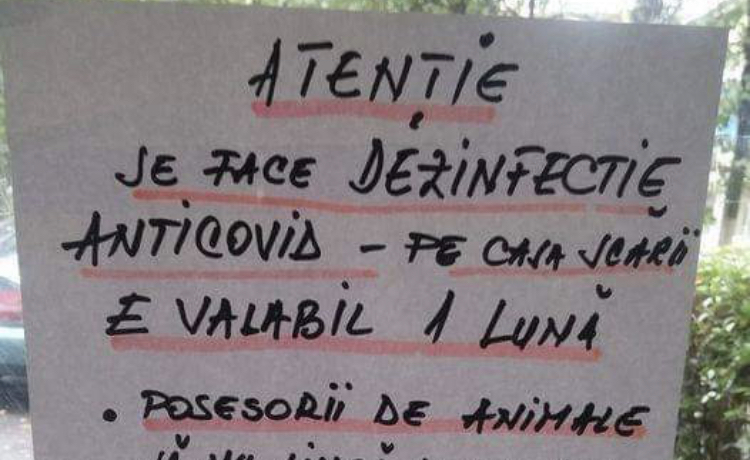 ATENȚIE
SE FACE DEZINFECTIE
ANTICOVID - PE CASA SCĂRII
E VALABIL 1 LUNĂ
• POSESORII DE ANIMALE